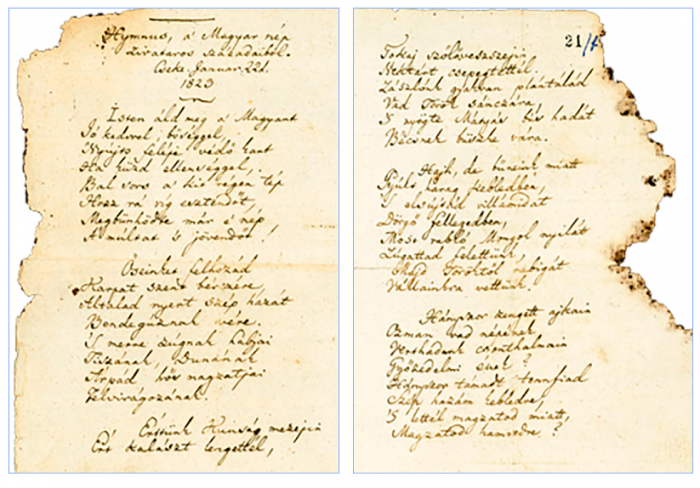 Hymnus, a' Magyar nép
zivataros századaiból.
Cseke. Januar. 22d.
1823
Isten áld meg a' Magyart
Jó kedvvel, bőséggel,
Nyújts feléje védő kart
Ha küzd ellenséggel,
Bal sors a' kit régen tép
Hozz rá víg esztendőt,
Megbűnhődte már e' nép
A' múltat 's jövendőt!
Őseinket felhozád
Kárpát szent bérczére,
Általad nyert szép hazát
Bendegúznak vére.
'S merre zúgnak habjai
Tiszának, Dunának
Árpád hős magzatjai
Felvirágozának.
Értünk Kunság mezein
Ért kalászt lengettél,
21/1
Tokaj szőlővesszein
Nektárt csepegtettél.
Zászlónk gyakran plántálád
Vad Török sánczára,
'S nyögte Mátyás bús hadát
Bécsnek büszke vára.
Hajh, de bűneink miatt
Gyúlt harag kebledben,
'S elsujtád villámidat
Dörgő fellegedben,
Most rabló Mongol nyilát
Zúgattad felettünk,
Majd Töröktől rabigát
Vállainkra vettünk.
Hányszor zengett ajkain
Ozman vad népének
Vert hadunk csonthalmain
Győzedelmi ének?
Hányszor támadt tenfiad
Szép hazám kebledre,
'S lettél magzatod miatt,
Magzatod hamvedre?